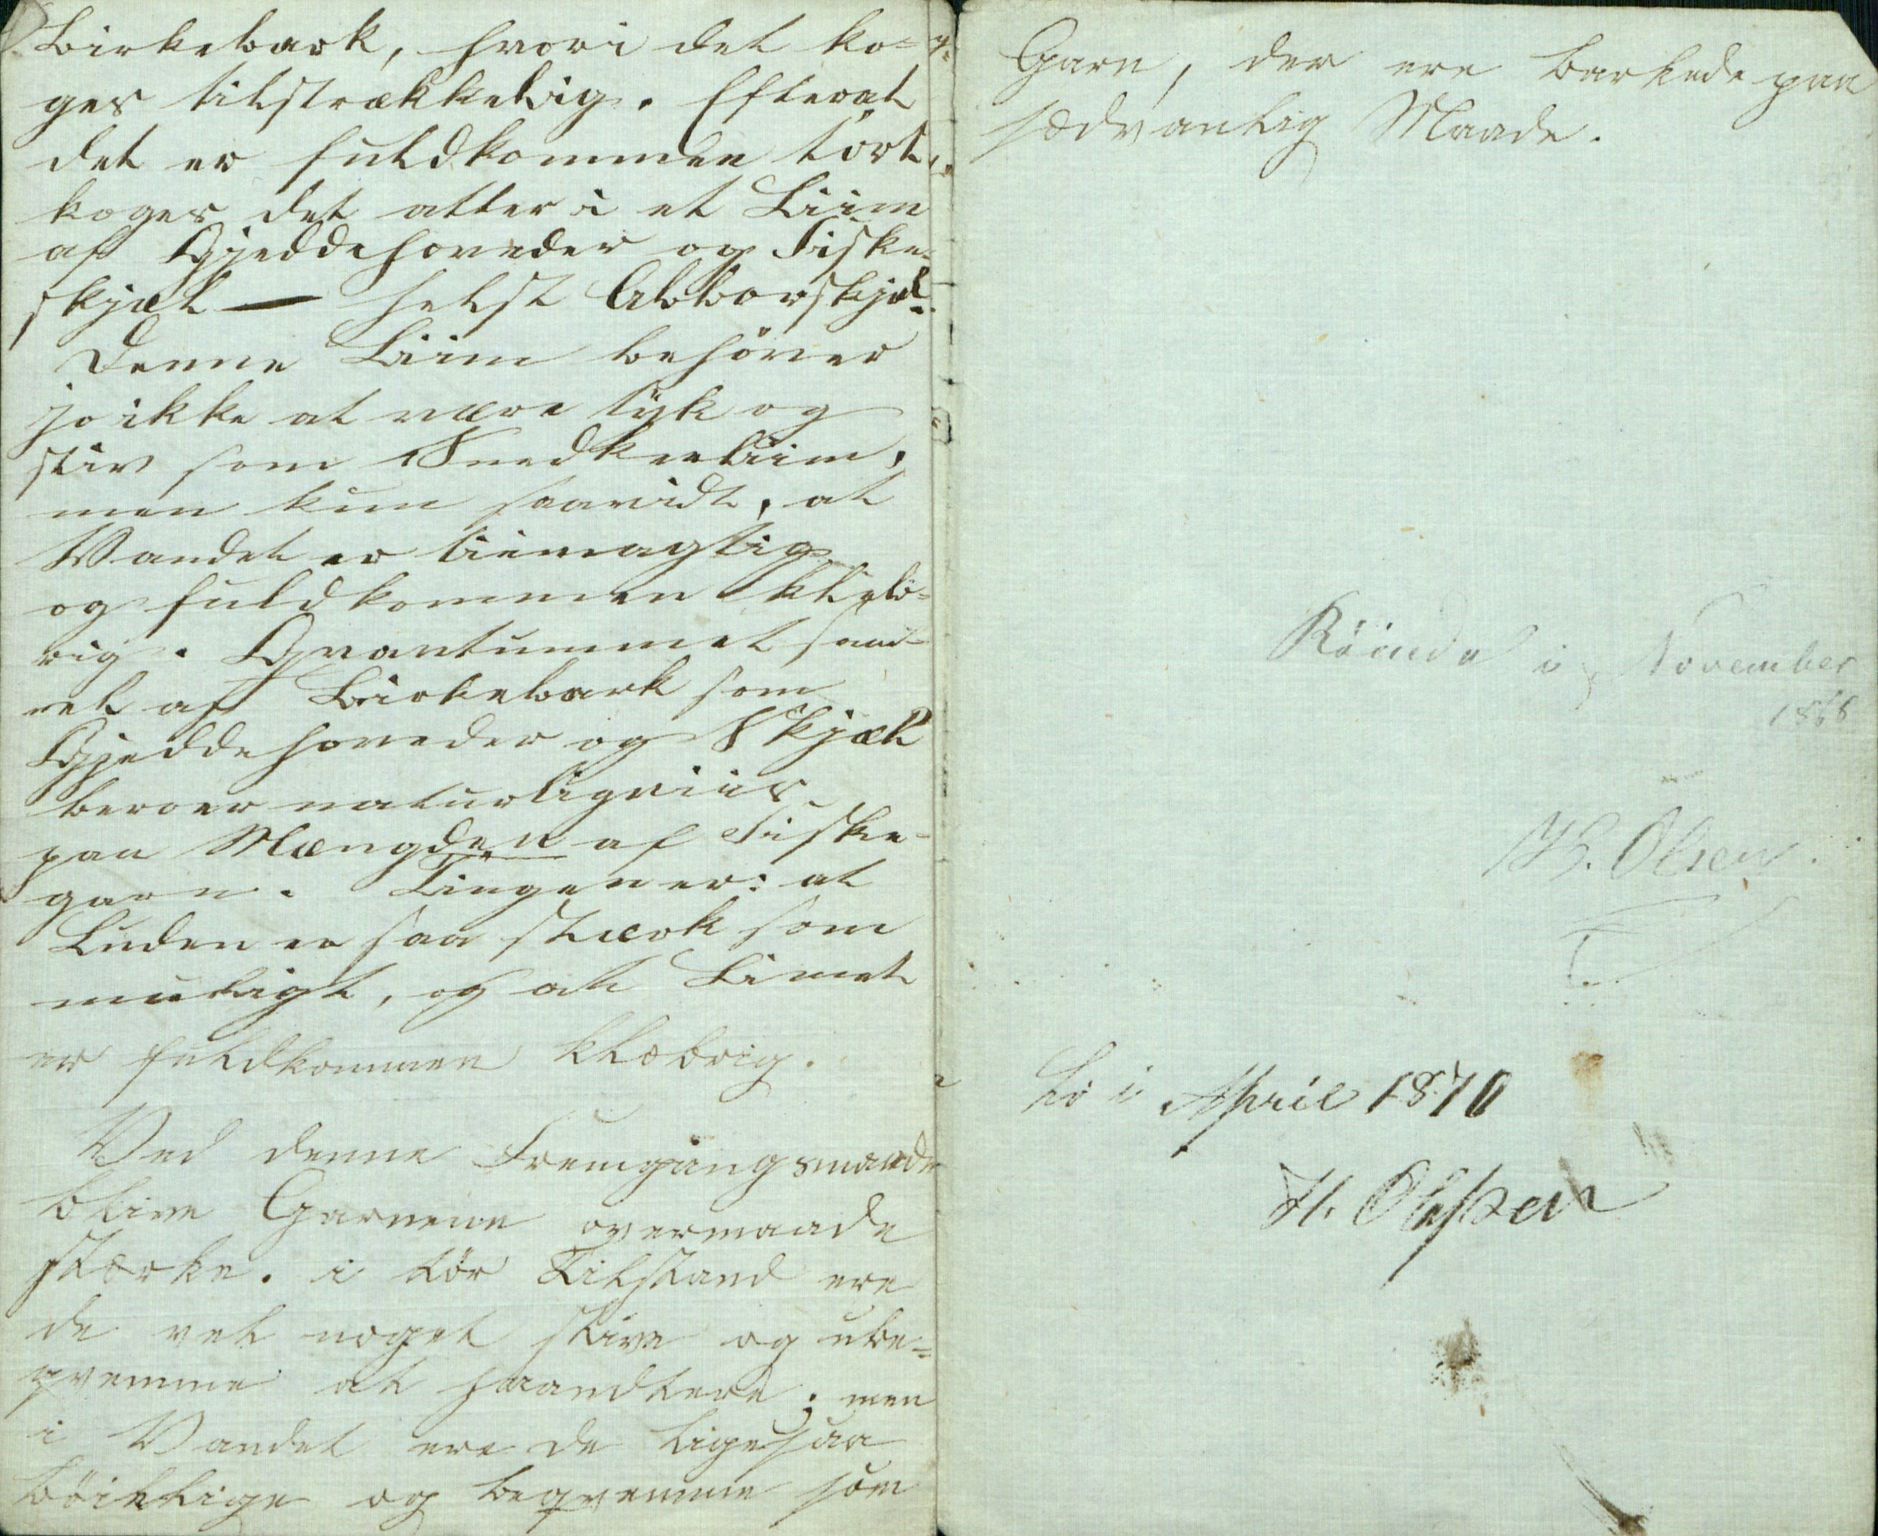 Birkebark, hvori det ko-
ges tilstrækkelig. Efterat
det er fuldkommen tört,
koges det atter i et Liim
af Gjeddehoveder og Fiske-
skjæl — helst Abborskjæl.
Denne Liim behöver
jo ikke at være tyk og
stiv som Snedkerliim,
men kun saavidt, at
Vandet er liimagtig
og fuldkommen klæb-
rig. Qvantummet saa-
vel af Birkebark som
Gjeddehoveder og Skjæl
beroer naturligviis
paa Mængden af Fiske-
garn. Tingen er: at
Luden er saa stærk som
muligt, og at Limet
er fuldkommen klæbrig.
Ved denne Fremgangsmaade
blive Garnene overmaade
stærke. i tör Tilstand ere
de vel noget stive og ube-
qvemme at haandtere; men
i Vandet ere de ligesaa
böielige og beqvemme som
Garn, der ere barkede paa
sædvanlig Maade.
i November
1868
H. Olsen.
i April 1870
H. Olsen